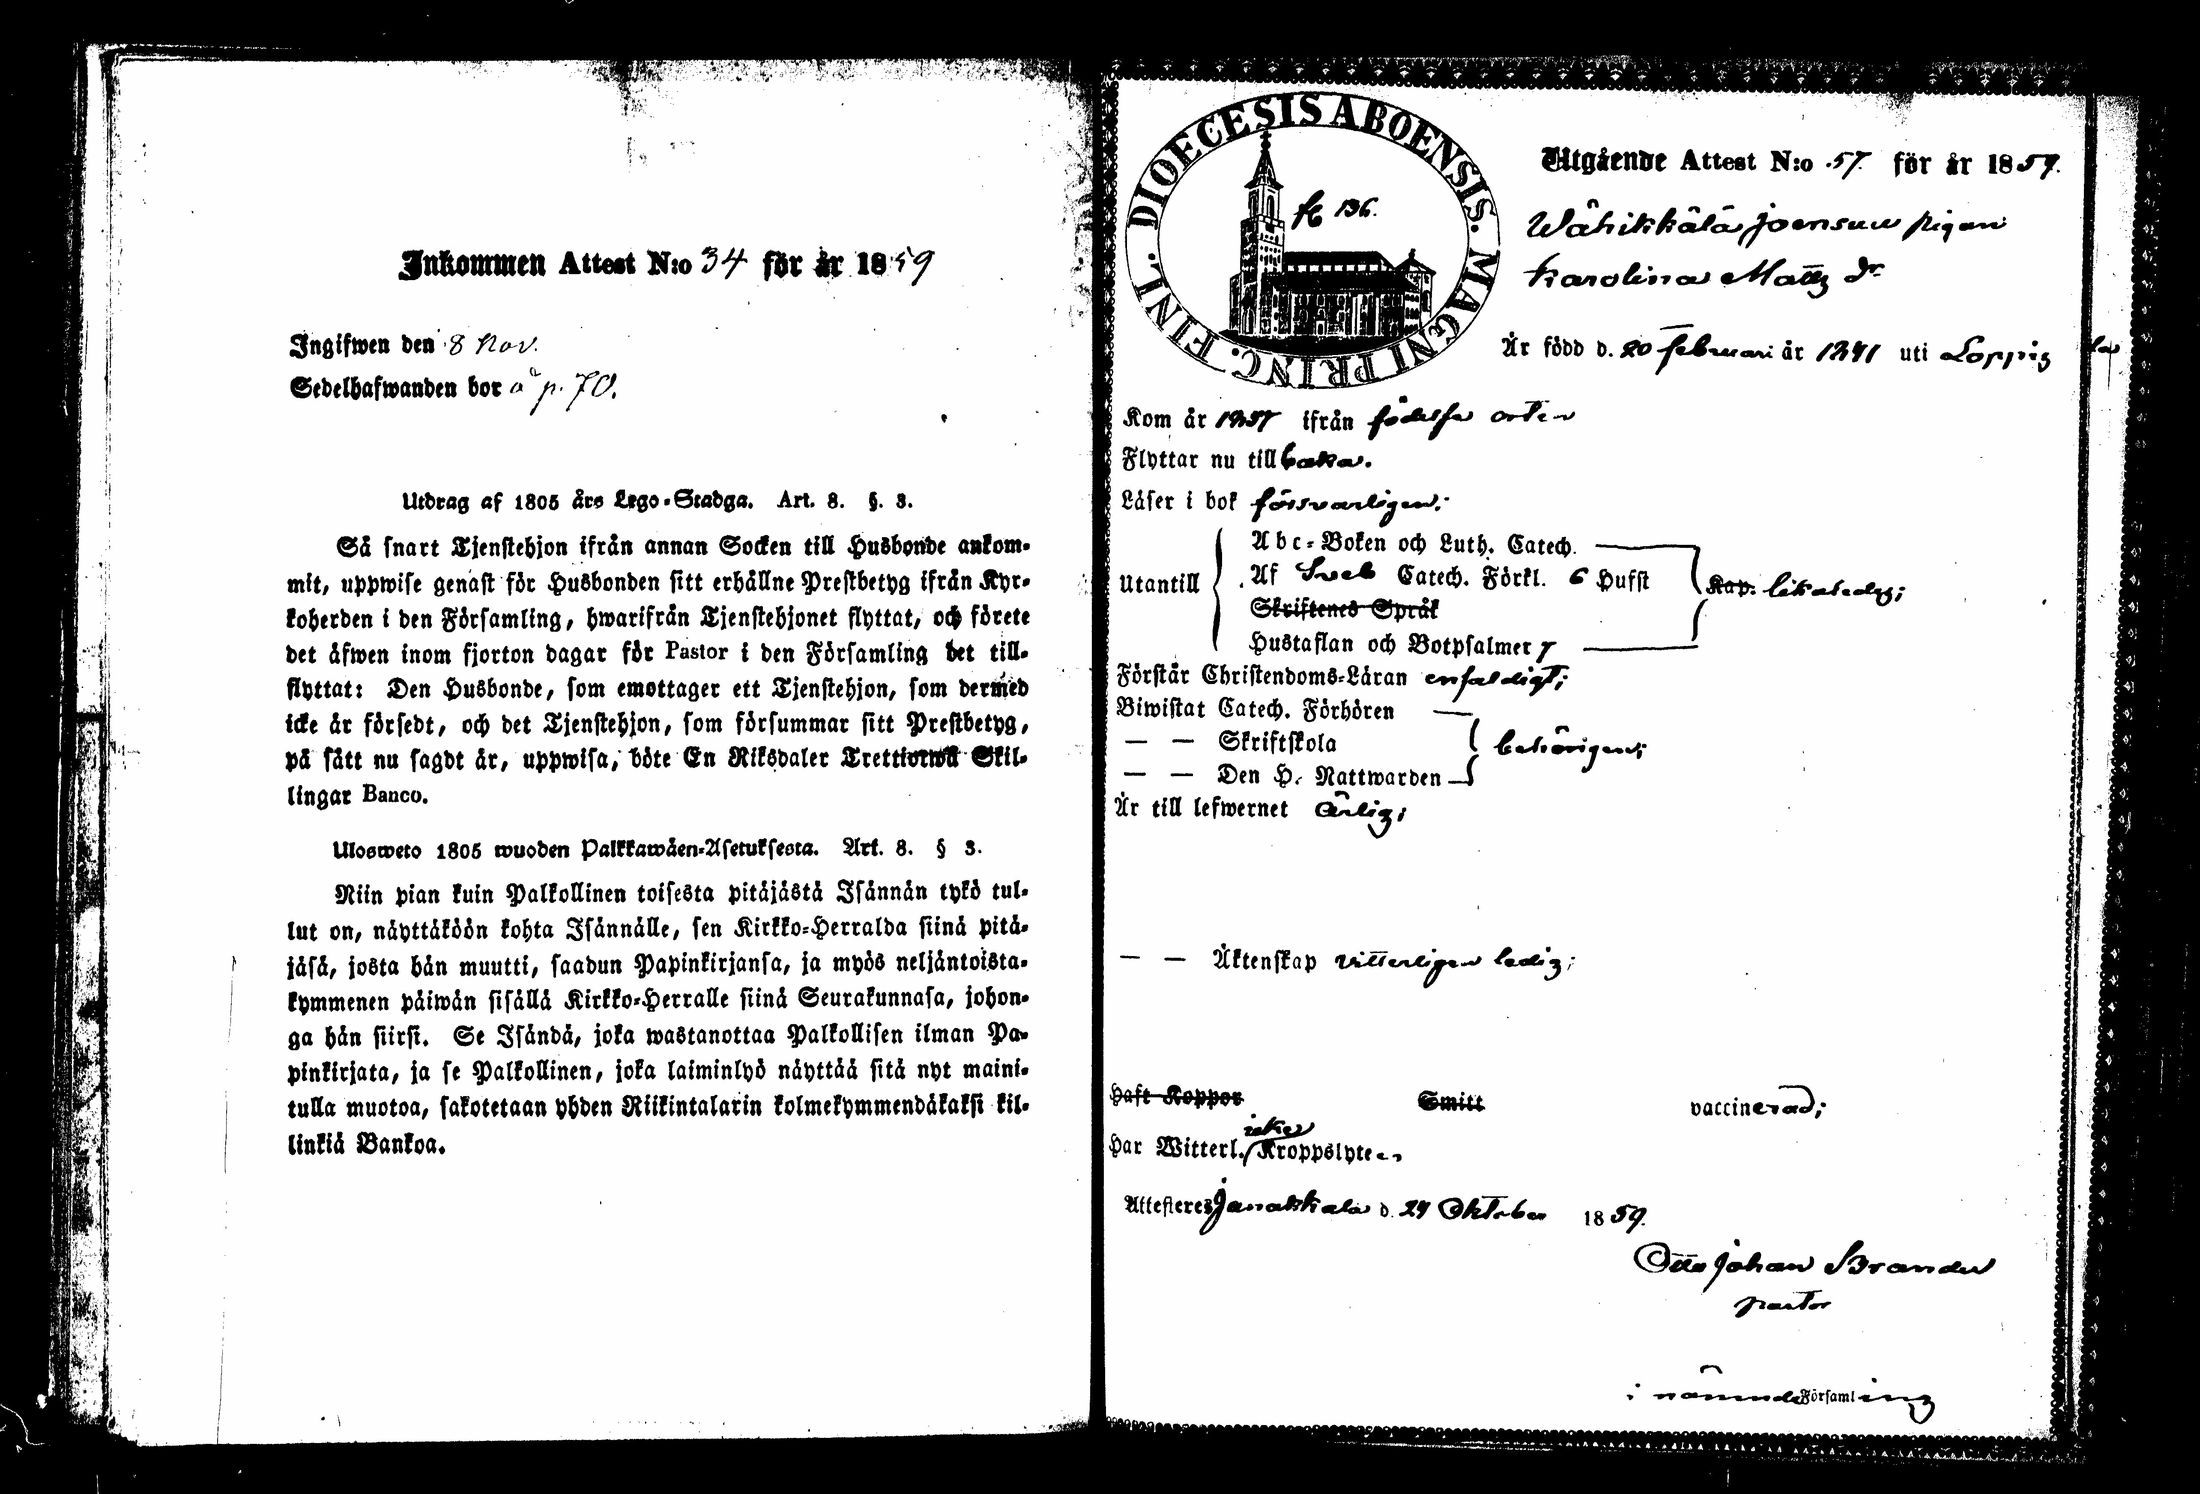 Inkommen Attest N:o 34 för år 1859
Ingifwen den 8 Nov.
Sedelhafwanden bor å p. 70.
Utdrag af 1805 års Lego-Stadga. Art. 8. §. 3.
Så snart Tjenstehjon ifrån annan Socken till Husbonde ankom-
mit, uppwise genast för Husbonden sitt erhållne Prestbetyg ifrån Kyr-
koherden i den Församling, hwarifrån Tjenstehjonet flyttat, och förete
det äfwen inom fjorton dagar för Pastor i den Församling det till-
flyttat: Den Husbonde, som emottager ett Tjenstehjon, som dermed
icke är försedt, och det Tjenstehjon, som försummar sitt Prestbetyg,
på sätt nu sagdt är, uppwisa, böte En Riksdaler Trettiotwå Skil-
lingar Banco.
Ulosweto 1805 wuoden Palkkawäen-Asetuksesta. Art. 8. § 3.
Niin pian kuin Palkollinen toisesta pitäjästä Isännän tykö tul-
lut on, näyttäköön kohta Isännälle, sen Kirkko-Herralda siinä pitä-
jäsä, josta hän muutti, saadun Papinkirjansa, ja myös neljäntoista-
kymmenen päiwän sisällä Kirkko-Herralle siinä Seurakunnasa, johon-
ga hän siirsi. Se Isändä, joka wastanottaa Palkollisen ilman Pa-
pinkirjata, ja se Palkollinen, joka laiminlyö näyttää sitä nyt maini-
tulla muotoa, sakotetaan yhden Riikintalarin kolmekymmendäkaksi kil-
linkiä Bankoa.
DIOECESIS ABOENSIS. MAGNI PRINC. FINL.
136.
Utgående Attest N:o 57. för år 1859.
Wähikkälä Joensuu pigan
Karolina Matts dr
Är född d. 20 Februari år 1841 uti Loppis
Kom år 1857 ifrån födelse orten
Flyttar nu tillbaka.
Läser i bok försvarligen;
Utantill
Abc-Boken och Luth. Catech.
Af Sveb Catech. Förkl. 6 Hufst
Kap. likaledes;
Skriftenes Språk
Hustaflan och Botpsalmer 7
Förstår Christendoms-Läran enfaldigt;
Biwistat Catech. Förhören
— — Skriftskola behörigen;
— — Den H. Nattwarden
Är till lefwernet ärlig;
— — Äktenskap vitterligen ledig;
Haft Koppor Smitt vaccinerad;
icke
Har Witterl. Kroppslyten
Attesteres Janakkala d. 24 Oktober 1859.
Otto Johan Brander
pastor
i nämnde Församling